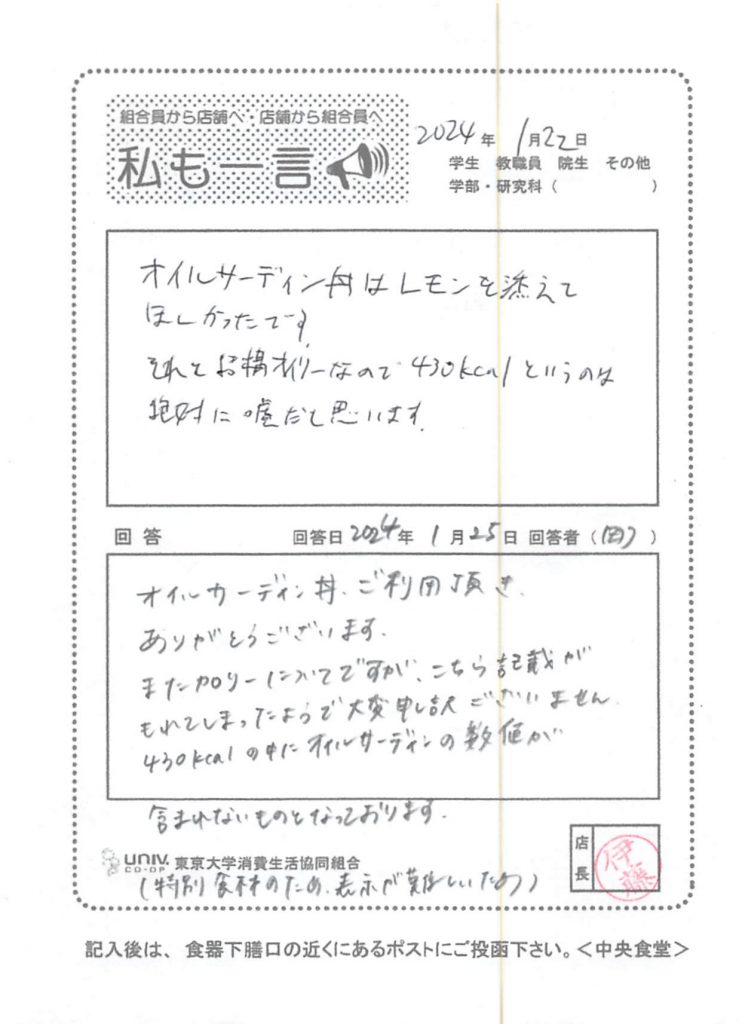 組合員から店舗へ・店舗から組合員へ
私も一言
2024年 1月22日
学生 教職員 院生 その他
学部・研究科（ ）
オイルサーディン丼はレモンを添えて
ほしかったです
それとお精オイリーなので430kcalというのは
絶対に嘘だと思います。
回答 回答日2024年 1月25日 回答者（ ）
オイルサーディン丼、ご利用頂き、
ありがとうございます。
またカロリーについてですが、こちら記載が
もれてしまったようで大変申し訳ございません。
430kcalの中にオイルサーディンの数値が
含まれないものとなっております。
UNIV. CO-OP 東京大学消費生活協同組合
（特別食材のため、表示が難しいため）
店長
伊藤
記入後は、食器下膳口の近くにあるポストにご投函下さい。＜中央食堂＞